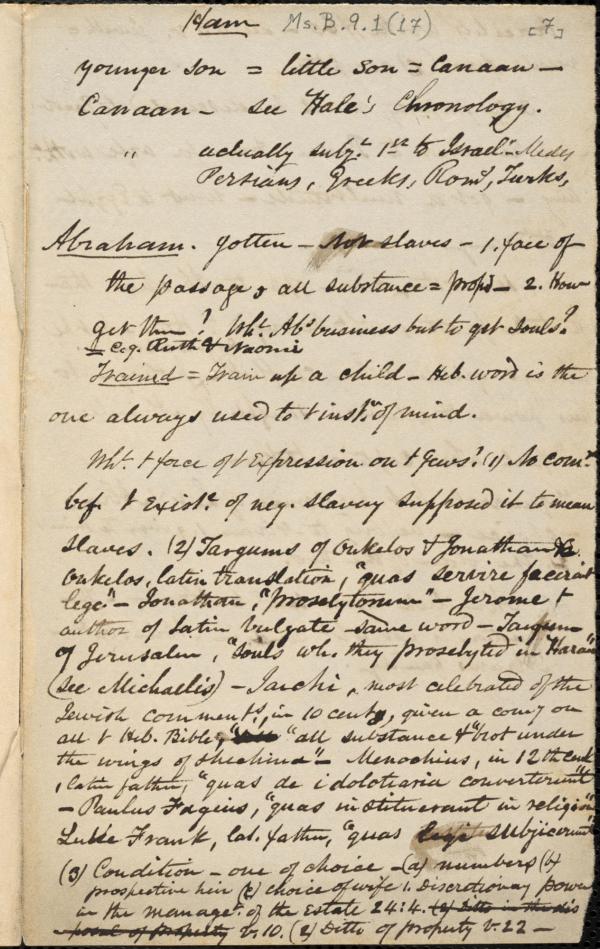 Ham Ms. B. 9. 1 (17) [7]
younger son = little son = Canaan —
Canaan — see Hale's Chronology.
" actually subj.t 1st to Israel.- Medes
Persians, Greeks, Rom.s, Turks,
Abraham. gotten — not slaves — 1. face of
the passage, all substance = prop.y — 2. How
get them? Wh.t Ab's business but to get souls?
= e.g. Ruth & Naomi
Trained = Train up a child — Heb. word is the
one always used to t inst.n of mind.
Wh.t t force of t expression on t Jews? (1) No com.r
bef. t exist.e of neg. slavery supposed it to mean
slaves. (2) Targums of Onkelos & Jonathan
Onkelos, latin translation, "quas servire fecerat
lege" — Jonathan, "proselytorum" — Jerome t
author of Latin Vulgate same word — Targum
of Jerusalem, "souls wh. they proselyted in Haran"
(see Michaelis) — Jarchi, most celebrated of the
Jewish comment.s, in 10 cent.y, given a com.y on
all t Heb. Bible, "all substance & "brot under
the wings of Shechina" — Menochius, in 12th cent
, latin father, "quas de idolotaria converterunt"
— Paulus Fagius, "quas instituerant in religion"
Luke Frank, Lat. father, "quas legi subjicerunt"
(3) Condition — one of choice — (a) numbers (b)
prospective heir (c) choice of wife 1. Discretionary power
in the manage.t of the Estate 24:4. (2) Ditto in the dis
posal of property v. 10. (2) Ditto of property v. 22 —